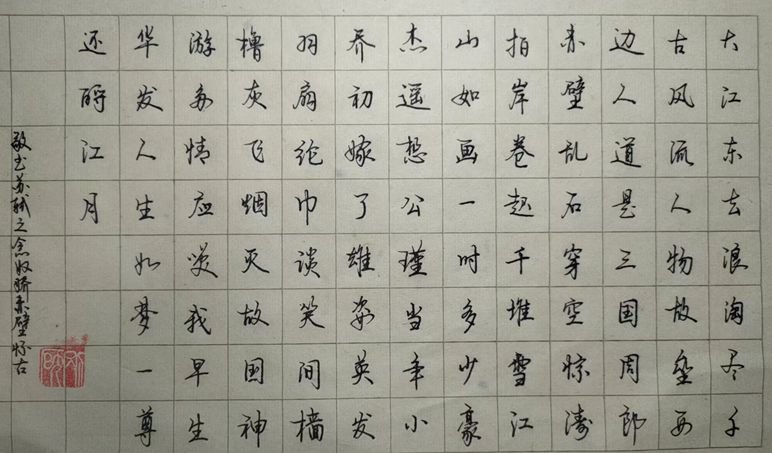 大江东去浪淘尽千
古风流人物故垒西
边人道是三国周郎
赤壁乱石穿空惊涛
拍岸卷起千堆雪江
山如画一时多少豪
杰遥想公瑾当年小
乔初嫁了雄姿英发
羽扇纶巾谈笑间樯
橹灰飞烟灭故国神
游多情应笑我早生
华发人生如梦一尊
还酹江月
敬书苏轼之念奴娇赤壁怀古